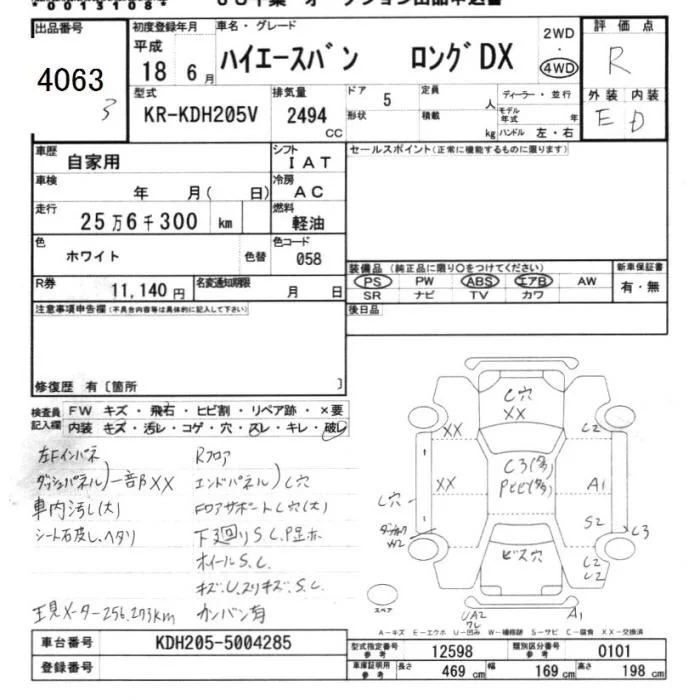 出品番号
4063
3
初度登録年月
平成
18 6月
車名・グレード
ハイエースバン ロングDX
2WD
・
4WD
評価点
R
外装 内装
E D
型式
KR-KDH205V
排気量
2494
CC
ドア
5
形状
定員
人
積載
kg
ディーラー・並行
モデル年式 年
ハンドル 左・右
車歴
自家用
シフト
IAT
車検
年 月( 日)
冷房
AC
走行
25万6千300 km
燃料
軽油
色
ホワイト
色替
色コード
058
R券
11,140円
名変通知期限
月 日
セールスポイント(正常に機能するものに限ります)
装備品(純正品に限り〇をつけてください)
PS PW ABS エアB AW
SR ナビ TV カワ
新車保証書
有・無
後日品
注意事項申告欄(不具合内容等は具体的に記入して下さい)
修復歴 有〔箇所 〕
検査員記入欄
FW キズ・飛石・ヒビ割・リペア跡・×要
内装 キズ・汚レ・コゲ・穴・スレ・キレ・破レ
左Fインパネ
ダッシュパネル)一部XX
車内汚し(大)
シート石皮し、ヘタリ
現メーター256,273km
Rフロア
エンドパネル)C穴
Fロアサポートし穴(大)
下廻りS.C.P足ホ
ホイールS.C.
キズ.U.スリキズ.S.C.
カンバン有
C穴
XX
XX
C2
C3(多)
Pヒビ(多)
XX
A1
C穴
S2
C3
W2
ビス穴
C2
U2
スペア
UA2
ワレ
A1
A-キズ E-エクボ U-凹み W-補修跡 S-サビ C-腐食 XX-交換済
車台番号
KDH205-5004285
登録番号
型式指定番号
参考
12598
類別区分番号
参考
0101
車庫証明用
参考
長さ 469 cm 幅 169 cm 高さ 198 cm